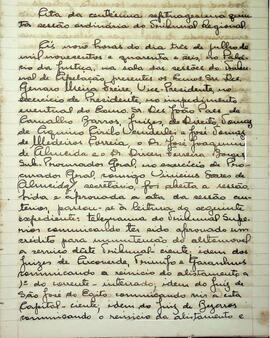 Ata da centésima septuagesima quin-
ta sessão ordinaria do Tribunal Regional.
Ás nove horas do dia tres de julho de
mil novecentos e quarenta e seis, no Palá-
cio da Justiça, na sala das sessões do Tribu-
nal de Apelação, presentes os Exmos Srs. Des.
Genaro Freire, Vice-Presidente, no
exercicio de Presidente, no impedimento
eventual do Exmo Sr. Des. João Paes de
Carvalho Barros, Juizes de Direito Tomaz
de Aquino Cirilo Wanderlei e José Tomaz
de Medeiros Correia, e Dr. José Joaquim
de Almeida e o Dr. Dirceu Borges
Sub. Procurador Geral, no exercicio de Pro-
curador Geral, comigo Vinicius Soares de
Almeida, secretario, foi aberta a sessão.
Lida e aprovada a ata da sessão an-
terior, passou-se á leitura do seguinte
expediente: telegrama do Tribunal Supe-
rior comunicando ter sido aprovado um
crédito para do alistamento
a serviço deste Tribunal ciente, idem dos
Juizes de Triunfo e Garanhuns
comunicando a reinicio do alistamento a
1º do corrente - inteirado, idem do Juiz de
São José do Egito comunicando vir a esta
Capital - ciente, idem do Juiz de Bezerros
comunicando o reinicio do alistamento e